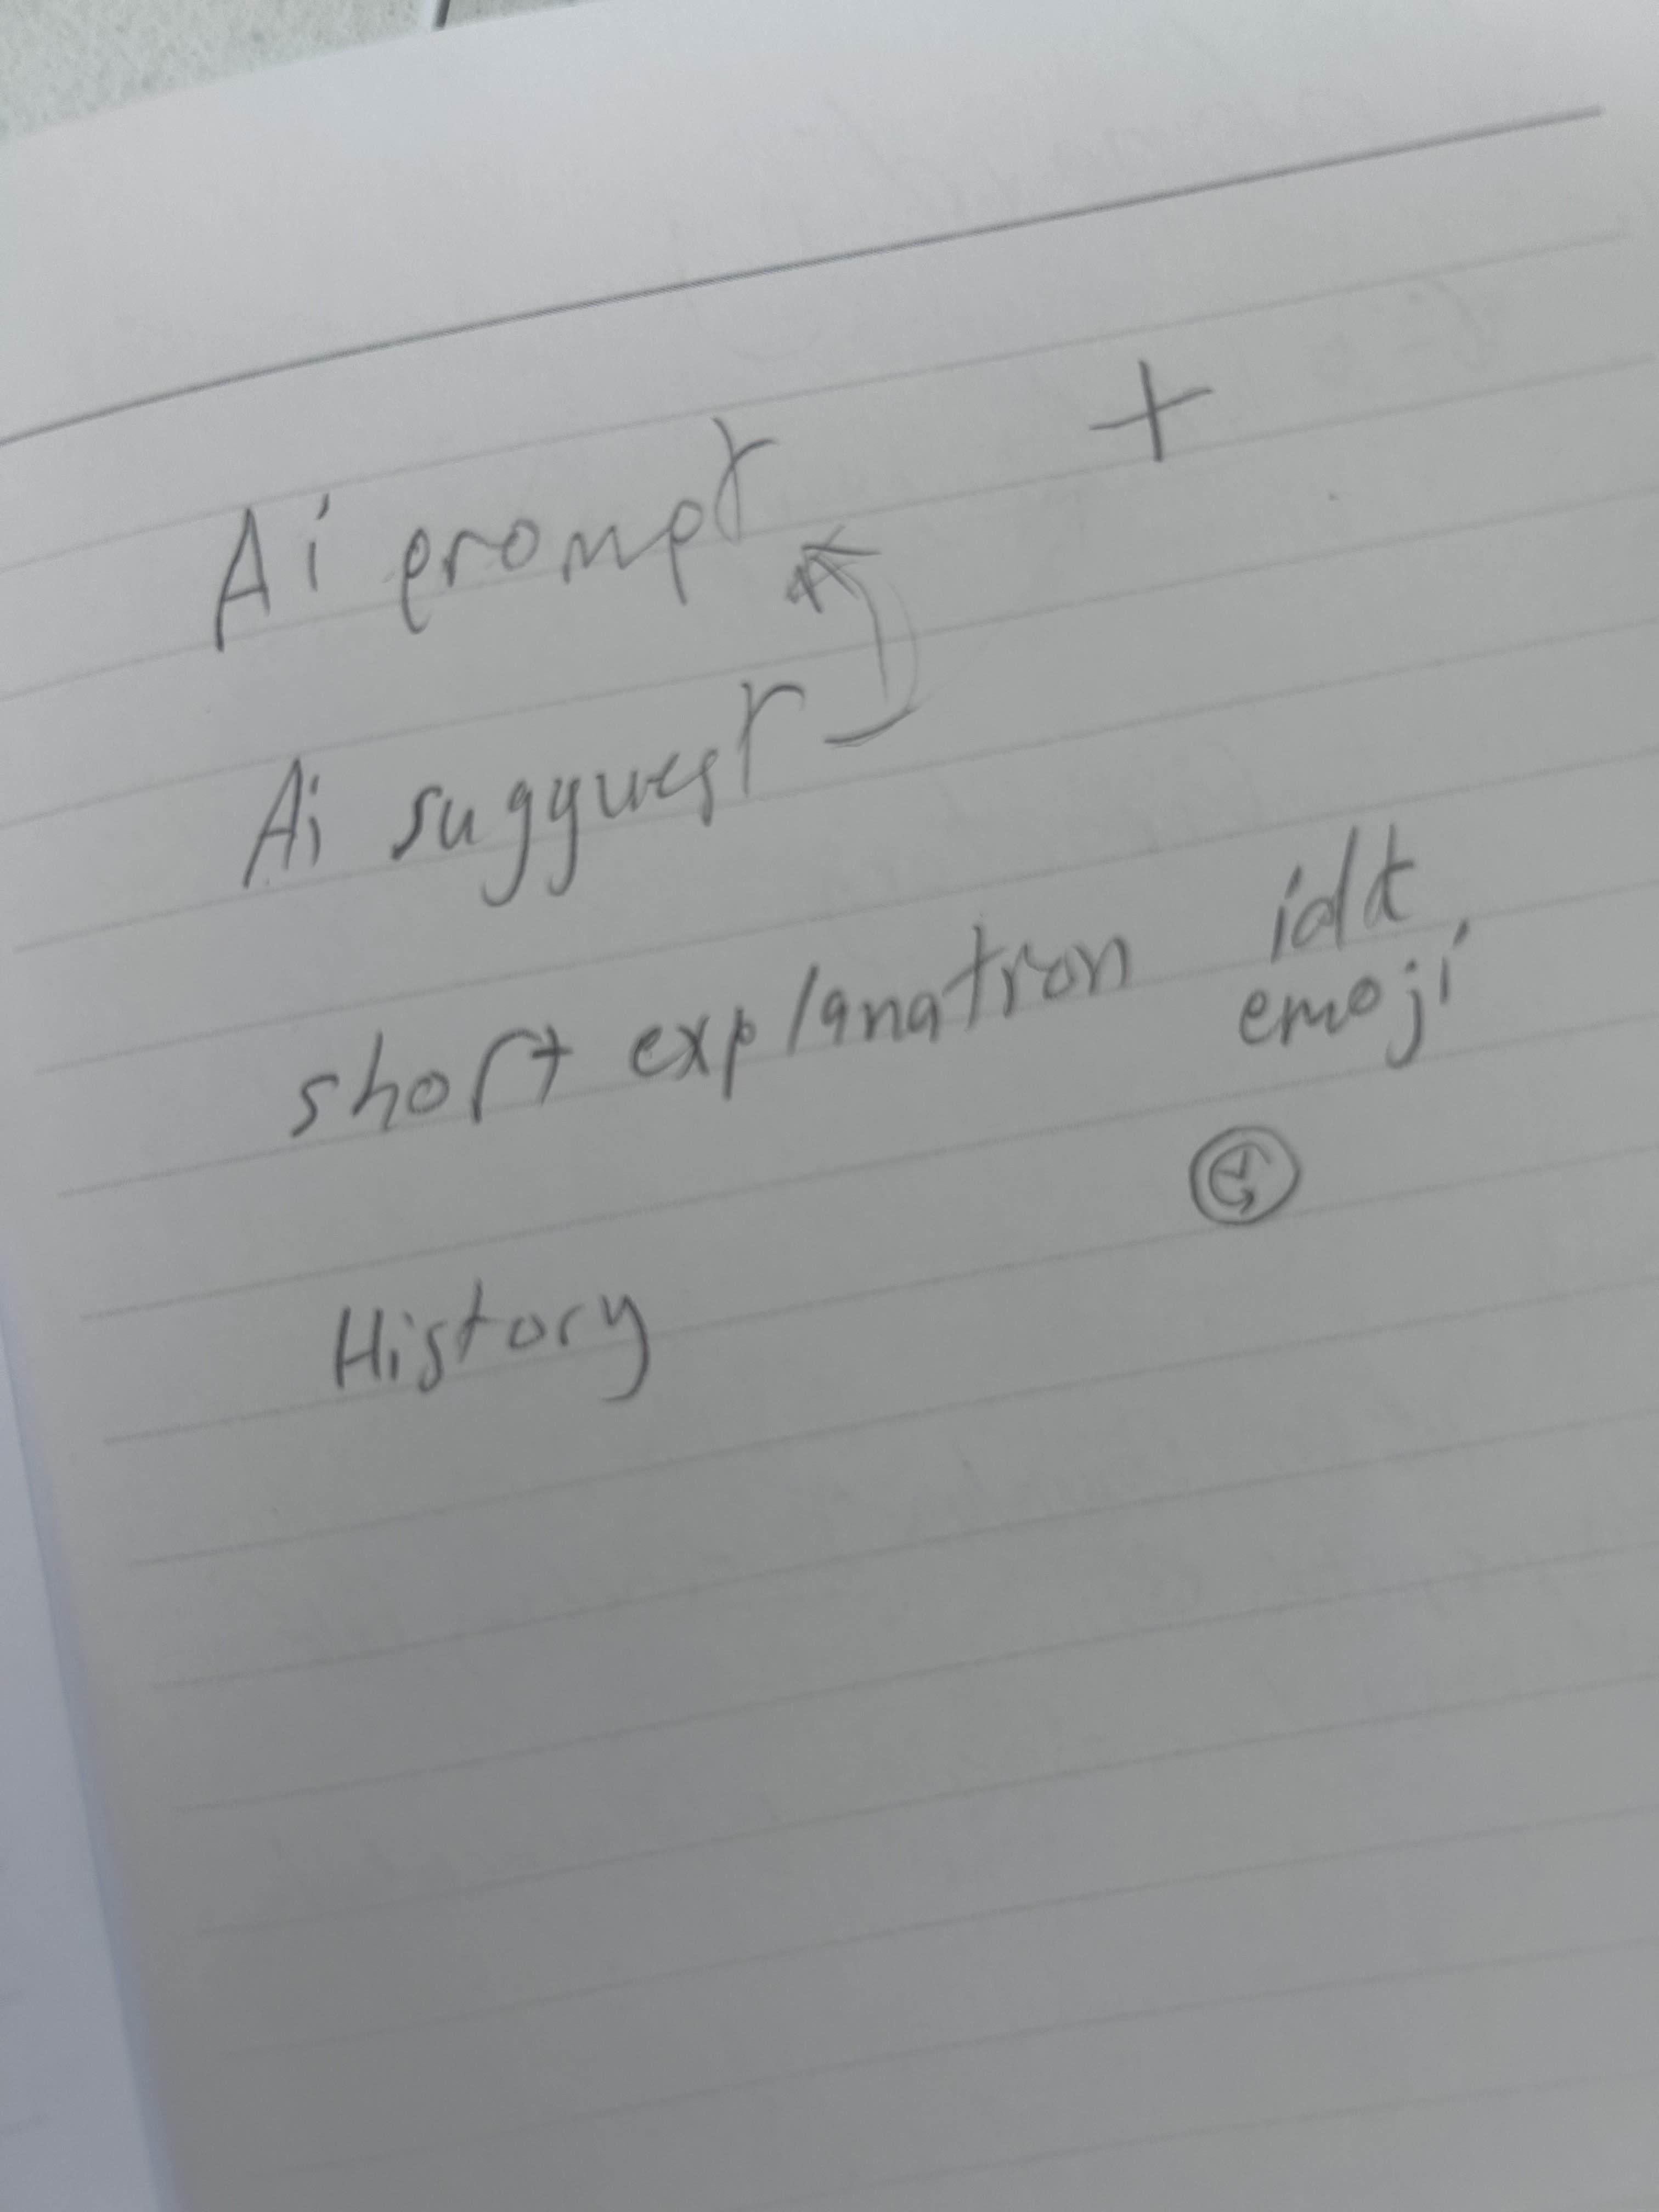 Ai prompt +
Ai sugguest
short explanation
emoji
History